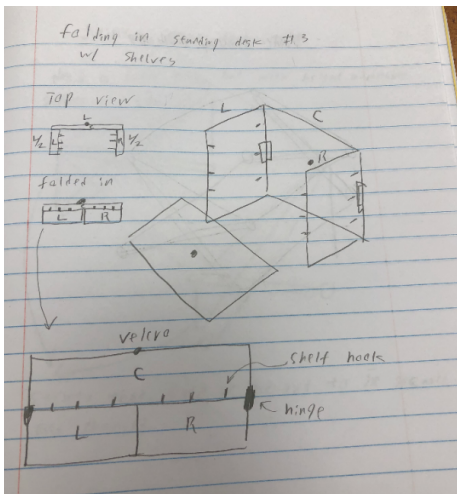 folding in standing desk #1.3
w/ shelves
Top view
L
L/2
L
R
L/2
folded in
L
R
L
C
R
velcro
C
shelf hook
L
R
hinge